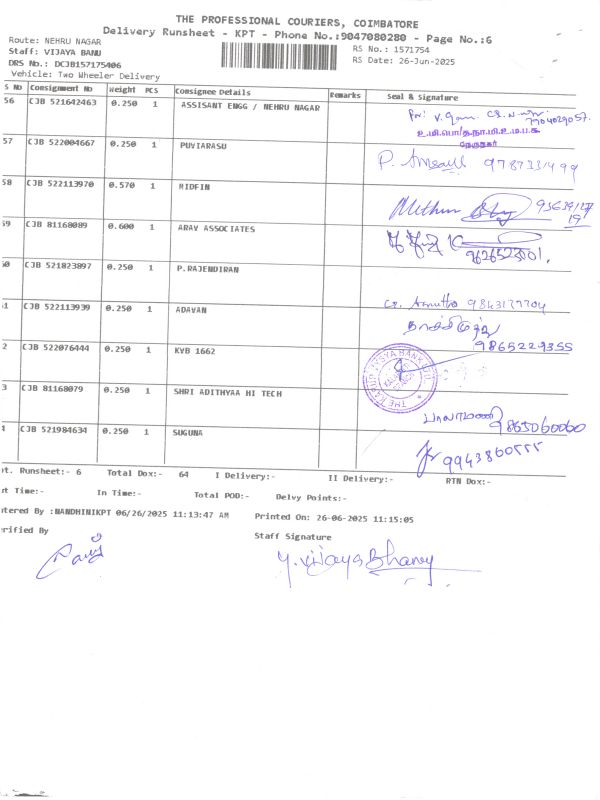 THE PROFESSIONAL COURIERS, COIMBATORE
Delivery Runsheet - KPT - Phone No.:9047080280 - Page No.:6
Route: NEHRU NAGAR
RS No.: 1571754
Staff: VIJAYA BANU
RS Date: 26-Jun-2025
DRS No.: DCJB157175406
Vehicle: Two Wheeler Delivery
S No Consignment No Weight PCS Consignee Details Remarks Seal & Signature
56 CJB 521642463 0.250 1 ASSISANT ENGG / NEHRU NAGAR
57 CJB 522004667 0.250 1 PUVIARASU
9787331499
58 CJB 522113970 0.570 1 RIDFIN
Mithun
59 CJB 81168089 0.600 1 ARAV ASSOCIATES
60 CJB 521823897 0.250 1 P.RAJENDIRAN
61 CJB 522113939 0.250 1 ADAVAN
9865229355
2 CJB 522076444 0.250 1 KVB 1662
THE KARUR VYSYA BANK LTD
3 CJB 81168079 0.250 1 SHRI ADITHYAA HI TECH
9865060060
4 CJB 521984634 0.250 1 SUGUNA
9943860555
ot. Runsheet:- 6 Total Dox:- 64 I Delivery:- II Delivery:- RTN Dox:-
rt Time:- In Time:- Total POD:- Delvy Points:-
ntered By :NANDHINIKPT 06/26/2025 11:13:47 AM Printed On: 26-06-2025 11:15:05
erified By
Staff Signature
Y. Vijaya Bhanu